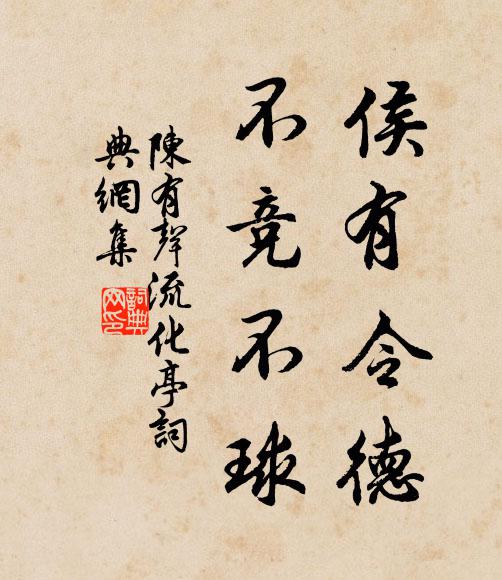 侯有令德
不竞不球
陳有聲流化亭詞
典網集
詞典网印